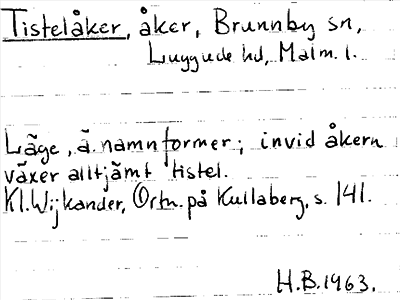 Tistelåker, åker, Brunnby sn,
Luggude hd, Malm. l.
Läge, ä. namnformer; invid åkern
växer alltjämt tistel.
Kl. Wijkander, Ortn. på Kullaberg, s. 141.
H.B. 1963.